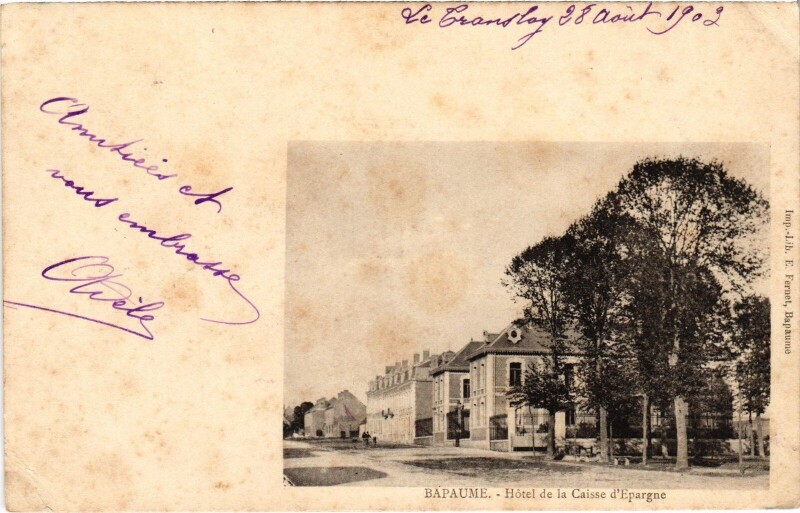 Le Transloy 28 Août 1903
Amitiés et
vous embrasse
Odèle
BAPAUME. - Hôtel de la Caisse d'Epargne
Imp.-Lib. E. Fernet, Bapaume